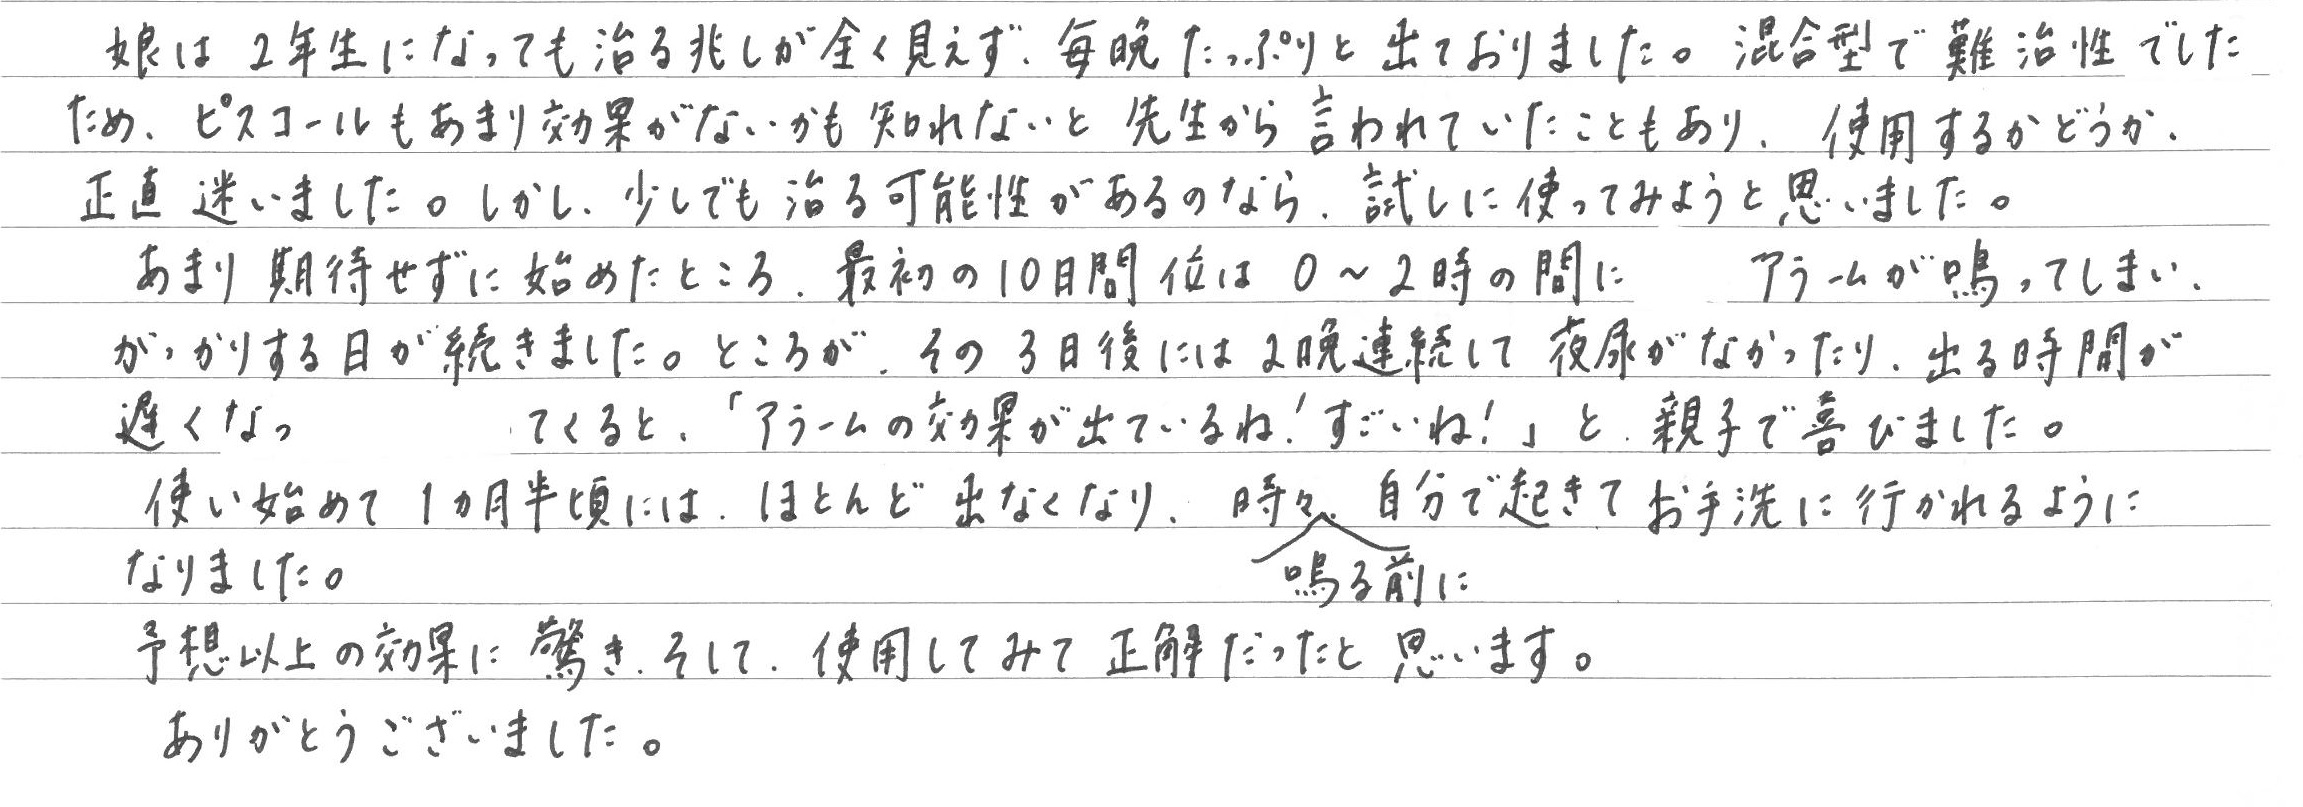 娘は2年生になっても治る兆しが全く見えず、毎晩たっぷりと出ておりました。混合型で難治性でした
ため、ピスコールもあまり効果がないかも知れないと先生から言われていたこともあり、使用するかどうか、
正直迷いました。しかし、少しでも治る可能性があるのなら、試しに使ってみようと思いました。
あまり期待せずに始めたところ、最初の10日間位は0～2時の間に アラームが鳴ってしまい、
がっかりする日が続きました。ところが、その3日後には2晩連続して夜尿がなかったり、出る時間が
遅くなっ てくると、「アラームの効果が出ているね!すごいね!」と、親子で喜びました。
使い始めて1カ月半頃には、ほとんど出なくなり、時々、自分で起きてお手洗に行かれるように
鳴る前に
なりました。
予想以上の効果に驚き、そして、使用してみて正解だったと思います。
ありがとうございました。